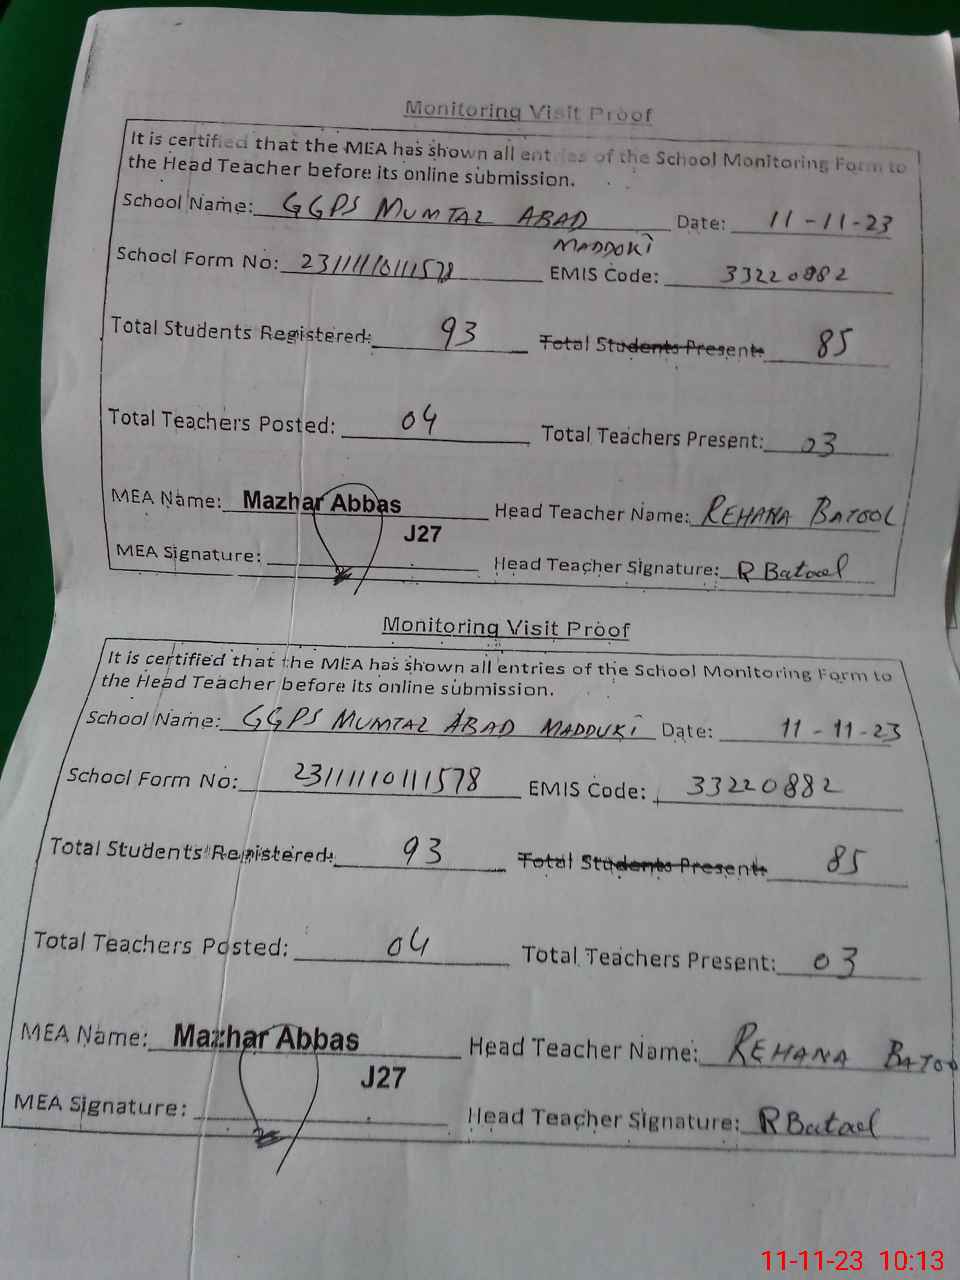 Monitoring Visit Proof
It is certified that the MEA has shown all entries of the School Monitoring Form to
the Head Teacher before its online submission.
School Name: GGPS MUMTAZ ABAD Date: 11-11-23
MADDOKI
School Form No: 23111110111578 EMIS Code: 33220882
Total Students Registered: 93 Total Students Present: 85
Total Teachers Posted: 04 Total Teachers Present: 03
MEA Name: Mazhar Abbas Head Teacher Name: REHANA BATOOL
J27
MEA Signature: Head Teacher Signature: R Batool
Monitoring Visit Proof
It is certified that the MEA has shown all entries of the School Monitoring Form to
the Head Teacher before its online submission.
School Name: GGPS MUMTAZ ABAD MADDUKI Date: 11-11-23
School Form No: 23111110111578 EMIS Code: 33220882
Total Students Registered: 93 Total Students Present: 85
Total Teachers Posted: 04 Total Teachers Present: 03
MEA Name: Mazhar Abbas Head Teacher Name: REHANA BATOO
J27
MEA Signature: Head Teacher Signature: R Batool
11-11-23 10:13